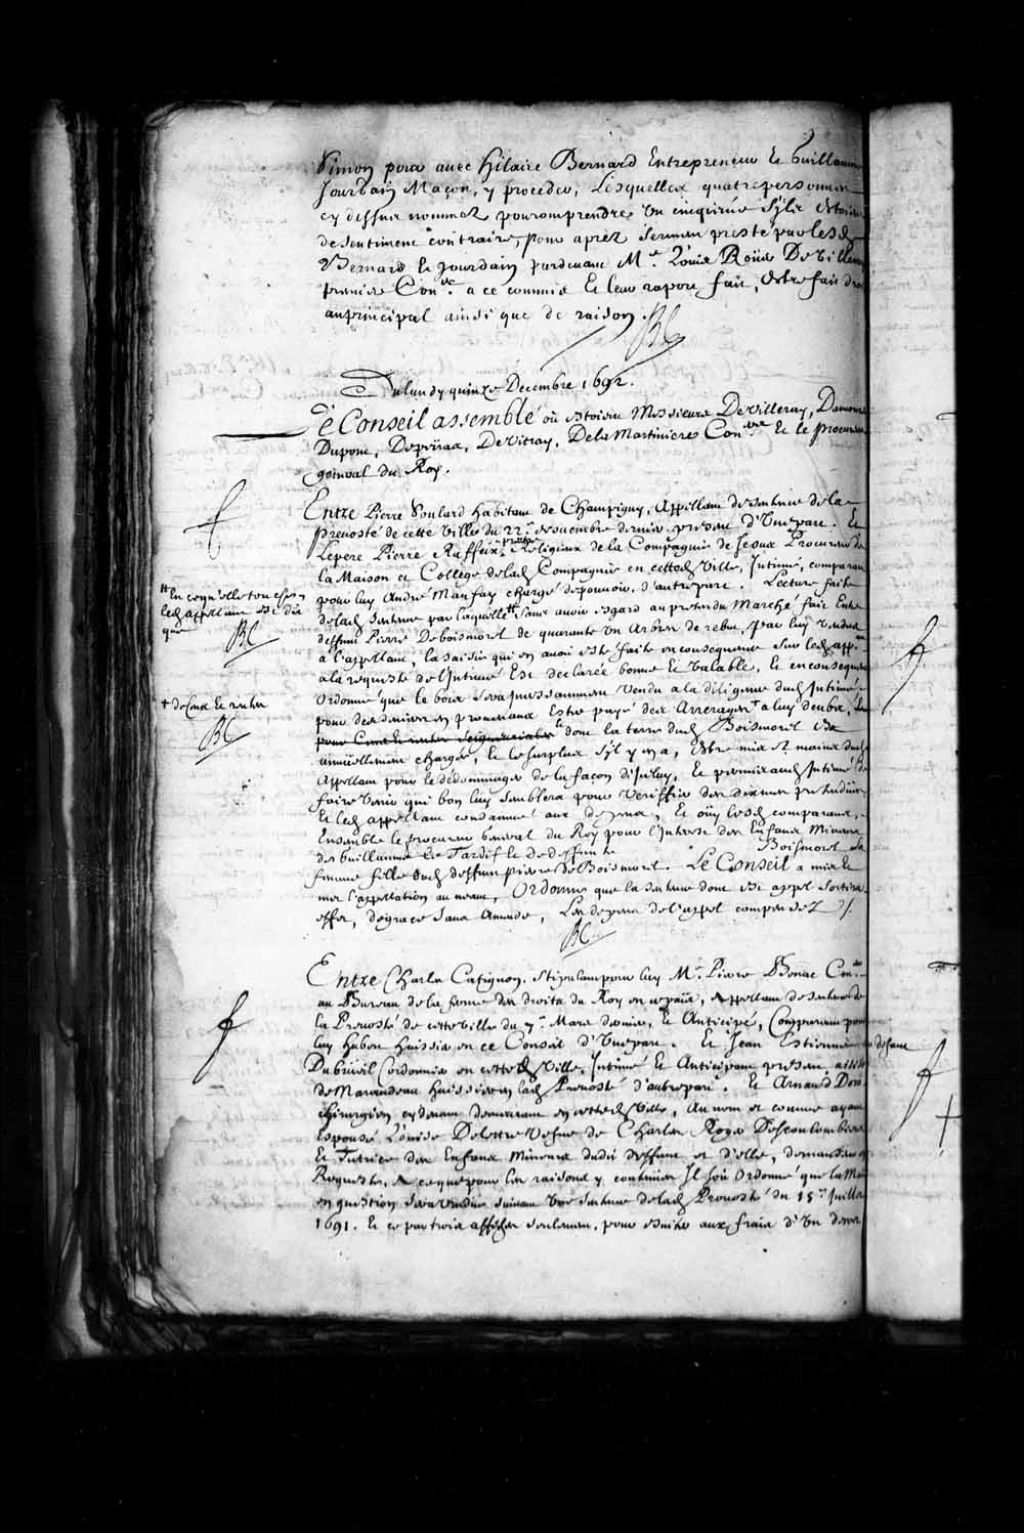 Simon pour avec hilaire Bernard Entrepreneur et Guillaume
Jourdain Maçon, y proceder, Lesquelles quatre personnes
cy dessus nommez pouront prendre un cinquie sy le
de sentiment contraire, pour aprez serment presté par lesd
Bernard et Jourdain pardevant Me Loüis Roüer De Villeray
premier Coner a ce commis et leur raport fait, Estre fait droit
au principal ainsi que de raison.
Du lundy quinze Decembre 1692.
Le Conseil assemblé où estoient Messieurs De Villeray, Damours
Dupont, Depeiras, De Vitray, De la Martiniere Coners Et le procureur
general du Roy.
Entre Pierre Soulard habitant de Champigny, Appellant de sentence de la
prevosté de cette Ville du 22e novembre dernier present d'Une part. Et
Le pere Pierre Raffeix, prestre Religieux de la Compagnie de Jesus Procureur de
la Maison et College de lad Compagnie en cetted Ville, Intimé, comparant
pour luy André chargé de pouvoir, d'autre part. Lecture faite
de lad sentence par laquelle # sans avoir esgard au pretendu Marché fait Entre
deffunt Pierre De boismorel de quarante un Arbres de rebut, par luy vendus
à l'appellant, la saisie qui en avoit esté faite en consequence sur led appnt
a la requeste de l'Intimé Est declarée bonne et valable, et en consequence
Ordonné que le bois sera incessamment vendu a la diligence dud Intimé
pour des deniers en provenans Estre payé des Arrerages + a luy deubs,
pour Cens et rentes seigneuriales dont la terre dud Boismorel est
annüellement chargée, et le surplus s'yl y en a, Estre mis Es mains dud
Appellant pour le dédommager de la façon d'iceluy, Et permis aud Intimé de
faire venir qui bon luy semblera pour veriffier des dixmes pretendües
Et led appellant condamné aux depens, Et oüy lesd comparans,
Ensemble le procureur General du Roy pour l'Interest des Enfans Mineurs
de Guillaume Le Tardif et de deffunte Boismorel sa
femme fille dud deffunt pierre de Boismorel. Le Conseil a mis et
met l'appellation au neant, Ordonne que la sentence dont est appel sortira
effet, de grace sans Amende, Les depens de l'appel compensez ./.
# En ce qu'elle
led appellant est dit
que
+ de Cens et rentes
Entre Charles Catignon, stipulant pour luy Me Pierre Benac Coner
au Bureau de la ferme des droits du Roy en ce païs, Appellant de sentence de
la Prevosté de cette Ville du 7e Mars dernier, et Anticipé, Comparant pour
luy hubert huissier en ce Conseil d'Une part. Et Jean Estienne
Dubreüil Cordonnier en cetted Ville, Intimé Et Anticipant present assisté
de Marandeau huissier en lad Prevosté d'autre part. Et Arnaud
chirurgien cydevant demeurant en cetted Ville, Au nom et comme ayant
Espousé Loüise Veuve de Charles Roger Descoulombiers
Et Tutrice des Enfans Mineurs dudit deffunt et d'elle, demandeur en
Requeste, a ce que pour les raisons y contenües Il soit Ordonné que la Maison
en question sera vendüe suivant une sentence de lad Prevosté du 15e Juillet
1691. et ce par trois affiches seulement, pour esviter aux frais d'Un decret